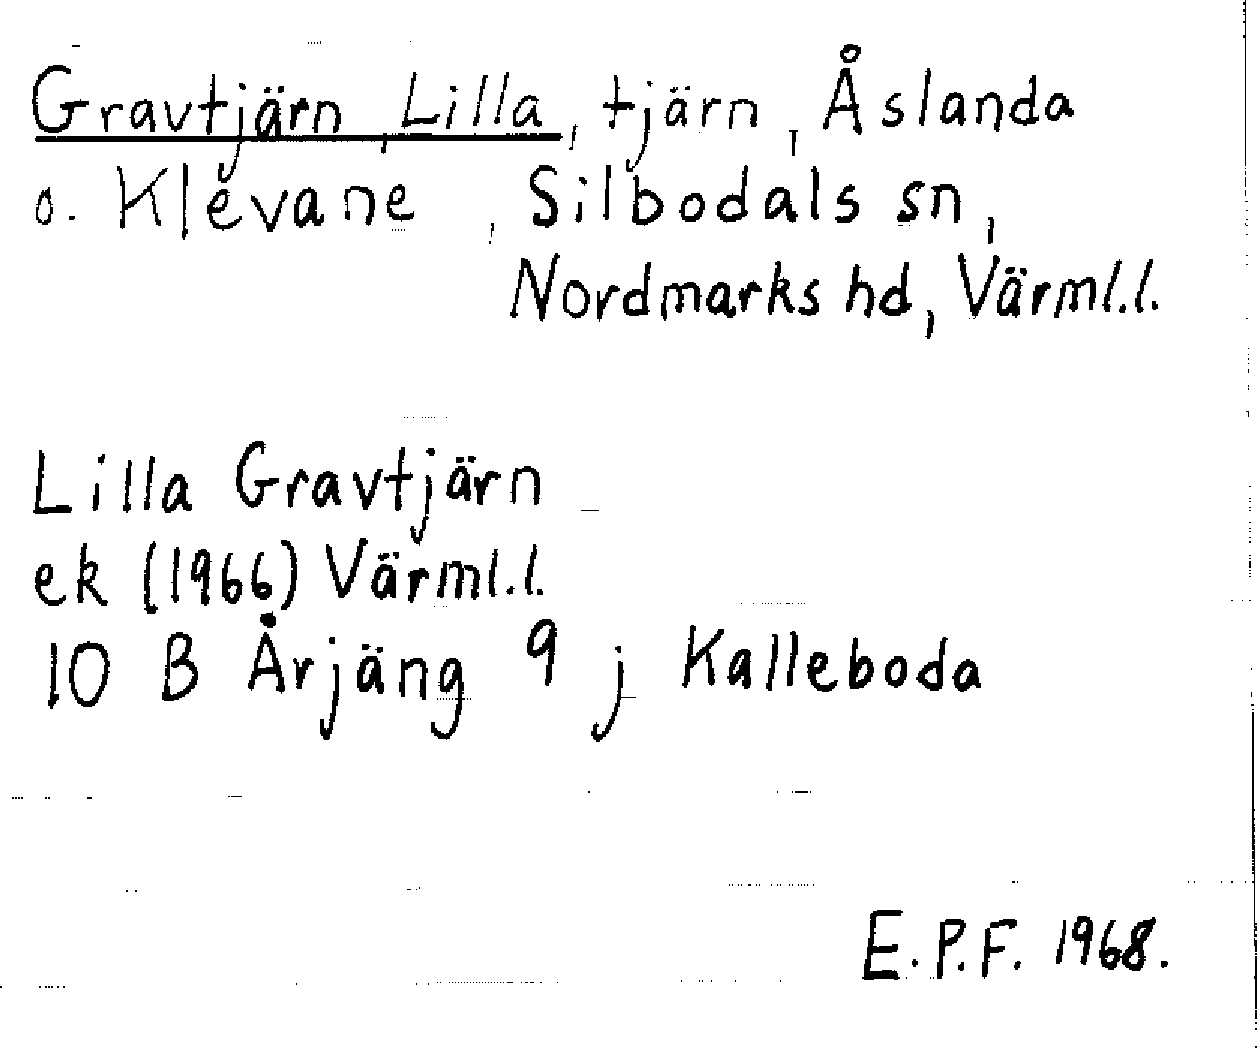 Gravtjärn, Lilla, tjärn, Åslanda
o. Klevane, Silbodals sn,
Nordmarks hd, Värml.l.
Lilla Gravtjärn
ek (1966) Värml.l.
10 B Årjäng 9 j Kalleboda
E.P.F. 1968.